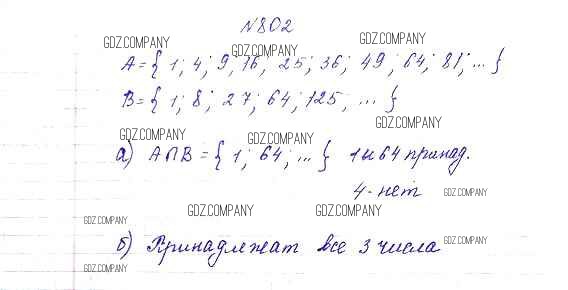 N802
GDZ.COMPANY GDZ.COMPANY GDZ.COMPANY
A = { 1; 4; 9; 16; 25; 36; 49; 64; 81; ... }
B = { 1; 8; 27; 64; 125; ... }
GDZ.COMPANY
GDZ.COMPANY GDZ.COMPANY
а) A∩B = { 1; 64; ... } 1 и 64 принад.
4 - нет GDZ.COMPANY
GDZ.COMPANY GDZ.COMPANY GDZ.COMPANY
б) Принадлежат все 3 числа GDZ.COMPANY
GDZ.COMPANY